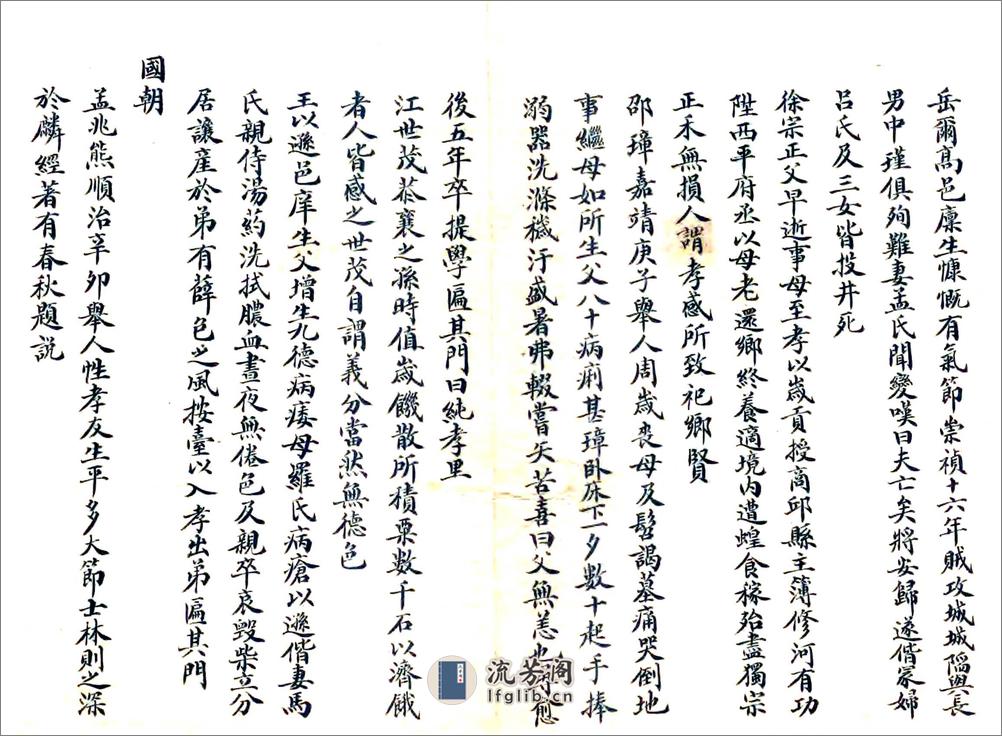 岳爾高邑廩生慷慨有氣節崇禎十六年賊攻城城陷與長
男中瑾俱殉難妻孟氏聞變嘆曰夫亡矣將安歸遂偕冢婦
呂氏及三女皆投井死
徐宗正父早逝事母至孝以歲貢授商邱縣主簿修河有功
陞西平府丞以母老還鄉終養適境內遭蝗食稼殆盡獨宗
正禾無損人謂孝感所致祀鄉賢
邵璋嘉靖庚子舉人周歲喪母及髫謁墓痛哭倒地
事繼母如所生父八十病痢甚璋卧床下一夕數十起手捧
溺器洗滌穢汙盛暑弗輟嘗矢苦喜曰父無恙也愈
後五年卒提學匾其門曰純孝里
江世茂恭襄之孫時值歲饑散所積粟數千石以濟餓
者人皆感之世茂自謂義分當然無德色
王以遜邑庠生父增生九德病痿母羅氏病瘡以遜偕妻馬
氏親侍湯药洗拭膿血晝夜無倦色及親卒哀毀柴立分
居讓產於弟有薛包之風按臺以入孝出弟匾其門
國朝
孟兆熊順治辛卯舉人性孝友生平多大節士林則之深
於麟經著有春秋題說
流芳閣
lfglib.cn